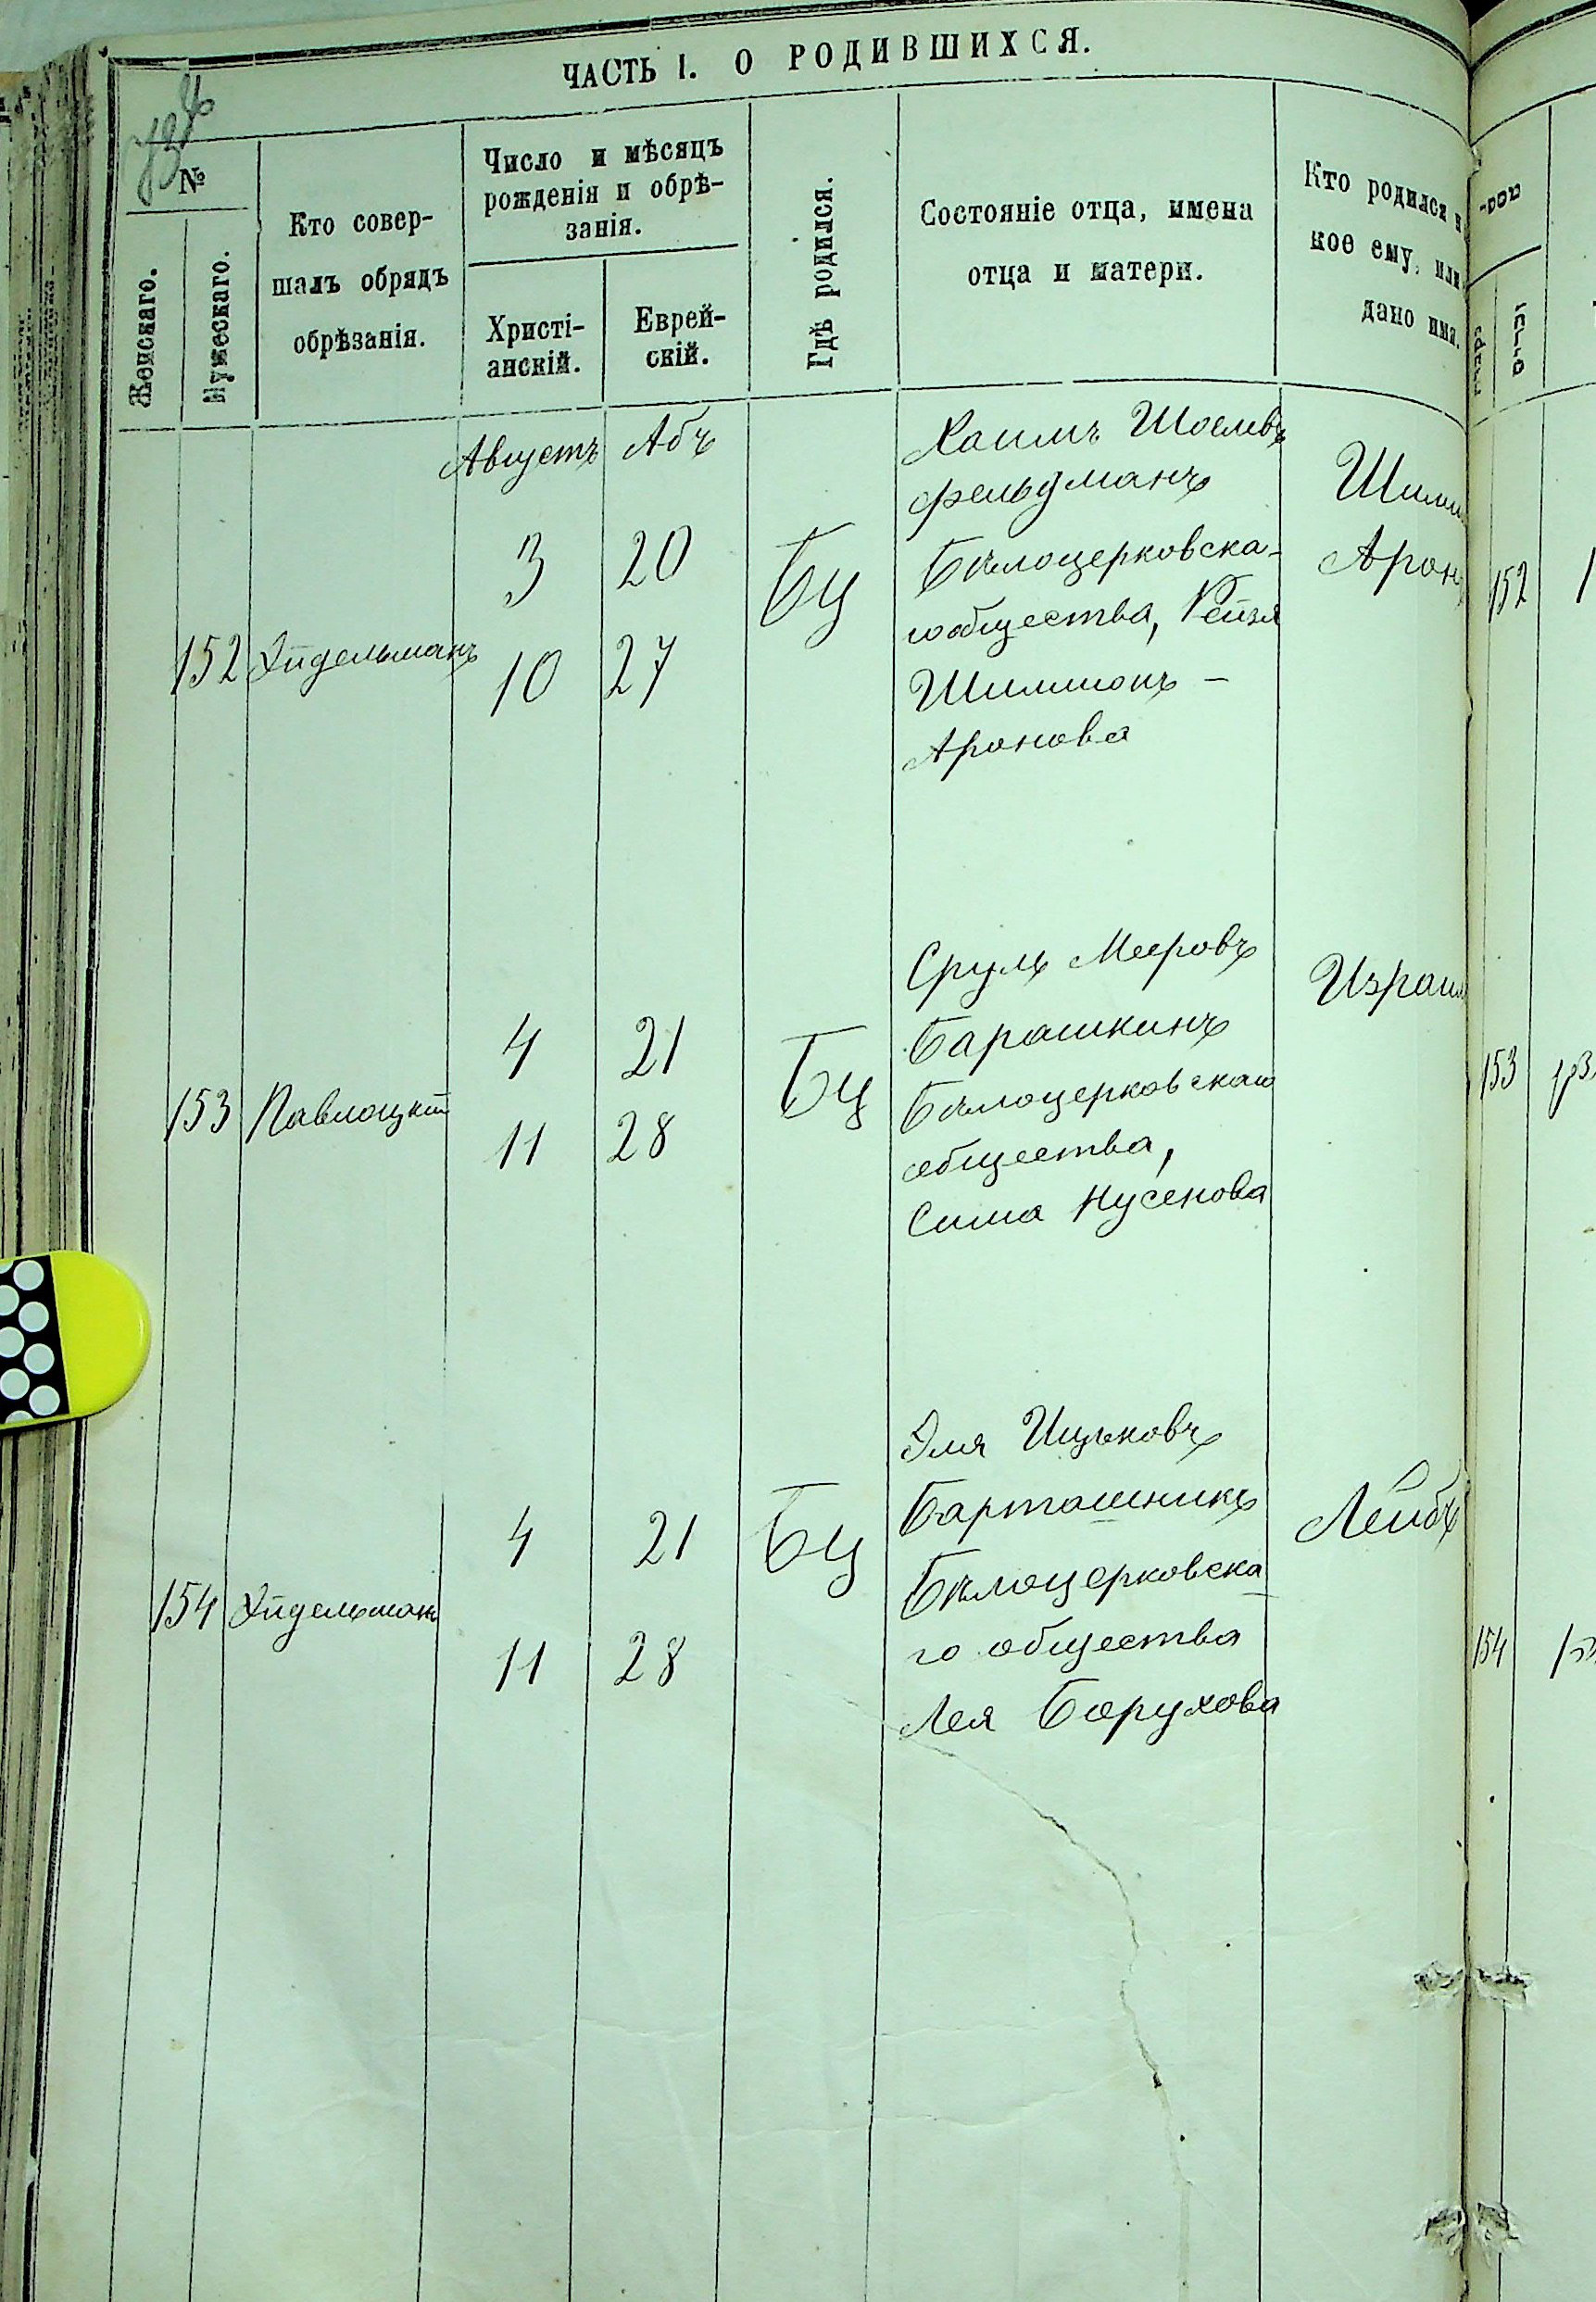 ЧАСТЬ I. О РОДИВШИХСЯ.
№
Женскаго.
Мужескаго.
Кто совер-
шалъ обрядъ
обрѣзанія.
Число и мѣсяцъ
рожденія и обрѣ-
занія.
Христі-
анскій.
Еврей-
скій.
Гдѣ родился.
Состояніе отца, имена
отца и матери.
Кто родился и
кое ему, или
дано имя.
Августъ Абъ
152 Эйдельманъ
3 20
10 27
Бц
Хаимъ Шоелевъ
Фельдманъ
Бѣлоцерковска-
го общества, Рейзя
Шимшонъ -
Аронова
Шимш
Аронъ
152
153 Павлоцкій
4 21
11 28
Бц
Сруль Мееровъ
Барашкинъ
Бѣлоцерковскаго
общества,
Сима Нусенова
Израил
153
154 Эйдельманъ
4 21
11 28
Бц
Эля Ицьковъ
Барташникъ
Бѣлоцерковска-
го общества
Лея Борухова
Лейбъ
154